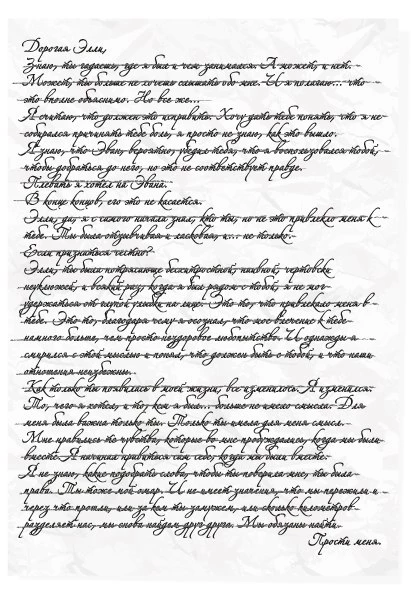 Дорогая Элли,
Знаю, ты гадаешь, где я был и чем занимался. А может, и нет.
Может, ты больше не хочешь слышать обо мне. И я полагаю... что
это вполне объяснимо. Но все же...
Я считаю, что должен это исправить. Хочу дать тебе понять, что я не
собирался причинять тебе боль, я просто не знаю, как это вышло.
Я знаю, что Эван, вероятно, убедил тебя, что я воспользовался тобой,
чтобы добраться до него, но это не соответствует правде.
Плевать я хотел на Эвана.
В конце концов, его это не касается.
Элли, да, я с самого начала знал, кто ты, но не это привлекло меня к
тебе. Ты была обаятельная и ласковая, и... не только.
Если признаться честно?
Элли, ты была потрясающе бесхитростной, наивной, чертовски
неуклюжей, и всякий раз, когда я был рядом с тобой, я не мог
удержаться от глупой улыбки на лице. Это то, что привлекало меня в
тебе. Это то, благодаря чему я осознал, что мое влечение к тебе
намного больше, чем просто нездоровое любопытство. И однажды я
смирился с этой мыслью и понял, что должен быть с тобой, и что наши
отношения неизбежны.
Как только ты появилась в моей жизни, все изменилось. Я изменился.
То, чего я хотел, и то, кем я был... больше не имело смысла. Для
меня была важна только ты. Только ты имела для меня смысл.
Мне нравились те чувства, которые во мне пробуждались, когда мы были
вместе. Я начинал нравиться сам себе, когда мы были вместе.
Я не знаю, какие подобрать слова, чтобы ты поверила мне, ты была
права. Ты тоже мой мир. И не имеет значения, что мы пережили и
через что прошли, или за кем ты замужем, или сколько километров
разделяет нас, мы снова найдем друг друга. Мы обязаны найти.
Прости меня.